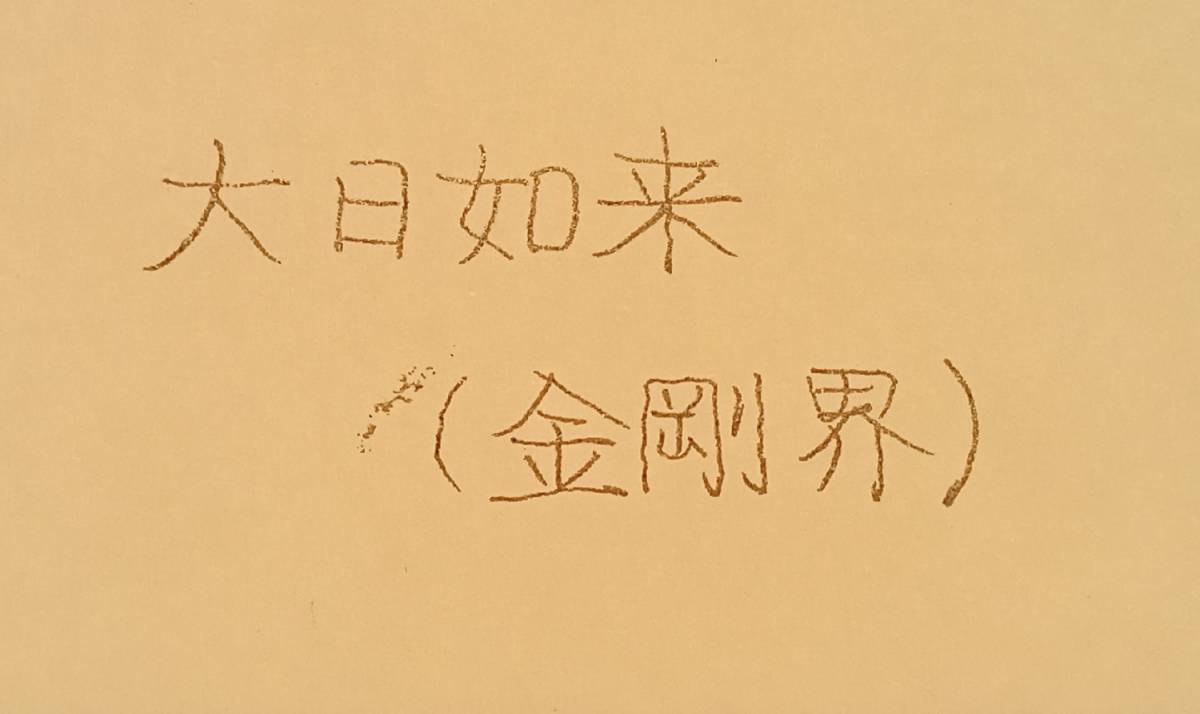 大日如来
(金剛界)